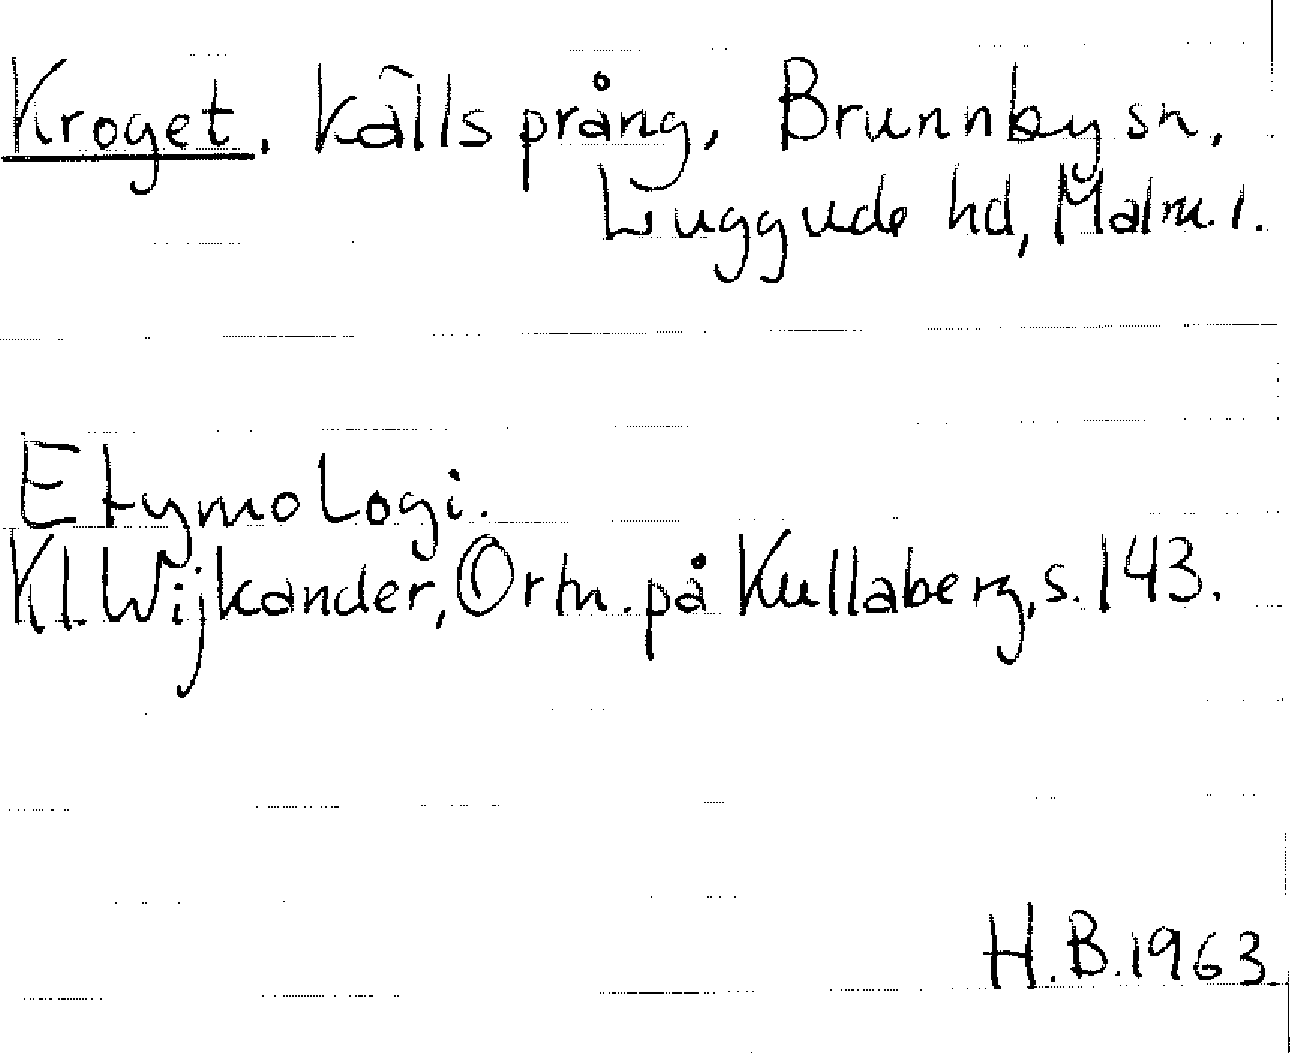 Kroget. Källsprång, Brunnby sn,
Luggude hd, Malm. l.
Etymologi.
Kl. Wijkander, Ortn. på Kullaberg, s. 143.
H.B. 1963.